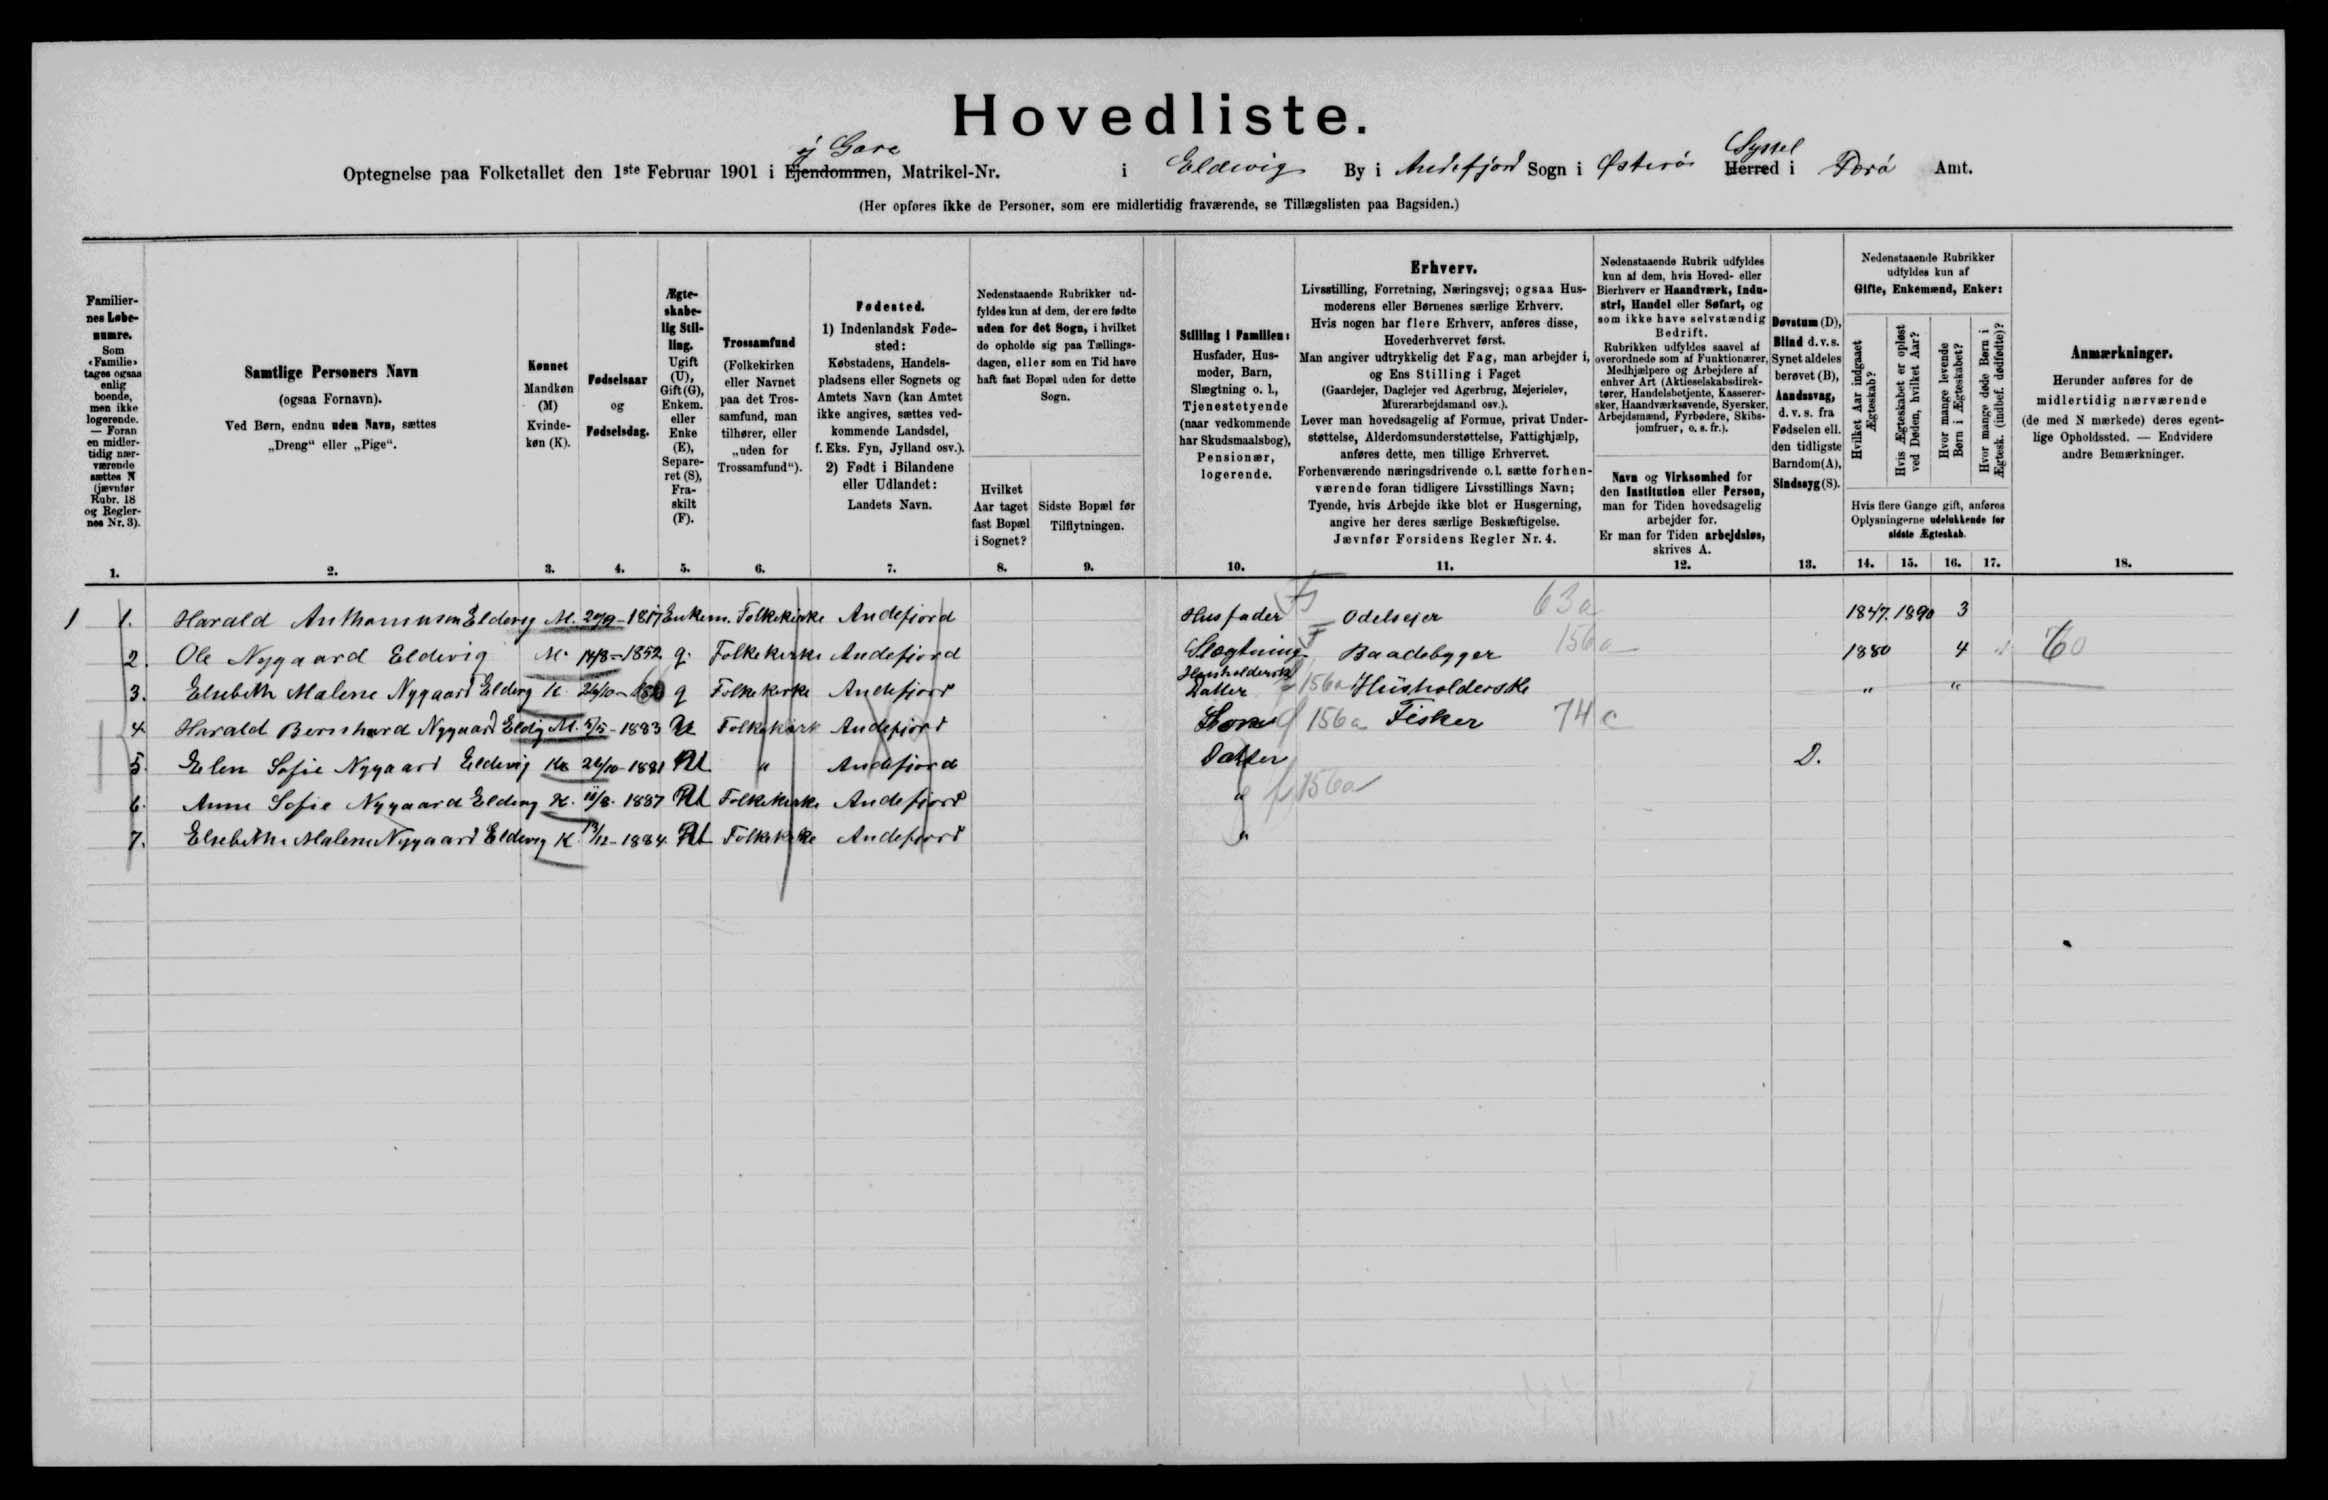 Hovedliste.
ej Gare Syssel
Optegnelse paa Folketallet den 1ste Februar 1901 i Ejendommen, Matrikel-Nr. i Eldevig By i Andefjord Sogn i Østerö Herred i Færö Amt.
(Her opføres ikke de Personer, som ere midlertidig fraværende, se Tillægslisten paa Bagsiden.)
Familiernes Løbenumre.
Som «Familie» tages ogsaa enlig boende, men ikke logerende. — Foran en midlertidig nærværende sættes N (jævnfør Rubr. 18 og Reglernes Nr. 3).
1.
Samtlige Personers Navn
(ogsaa Fornavn).
Ved Børn, endnu uden Navn, sættes „Dreng“ eller „Pige“.
2.
Kønnet
Mandkøn (M)
Kvindekøn (K).
3.
Fødselsaar
og
Fødselsdag.
4.
Ægteskabelig Stilling.
Ugift (U), Gift (G), Enkem. eller Enke (E), Separeret (S), Fraskilt (F).
5.
Trossamfund
(Folkekirken eller Navnet paa det Trossamfund, man tilhører, eller „uden for Trossamfund“).
6.
Fødested.
1) Indenlandsk Fødested:
Købstadens, Handelspladsens eller Sognets og Amtets Navn (kan Amtet ikke angives, sættes vedkommende Landsdel, f. Eks. Fyn, Jylland osv.).
2) Født i Bilandene eller Udlandet:
Landets Navn.
7.
Nedenstaaende Rubrikker udfyldes kun af dem, der ere fødte uden for det Sogn, i hvilket de opholde sig paa Tællingsdagen, eller som en Tid have haft fast Bopæl uden for dette Sogn.
Hvilket Aar taget fast Bopæl i Sognet?
8.
Sidste Bopæl før Tilflytningen.
9.
Stilling i Familien:
Husfader, Husmoder, Barn, Slægtning o. l., Tjenestetyende (naar vedkommende har Skudsmaalsbog), Pensionær, logerende.
10.
Erhverv.
Livsstilling, Forretning, Næringsvej; ogsaa Husmoderens eller Børnenes særlige Erhverv.
Hvis nogen har flere Erhverv, anføres disse, Hovederhvervet først.
Man angiver udtrykkelig det Fag, man arbejder i, og Ens Stilling i Faget
(Gaardejer, Daglejer ved Agerbrug, Mejerielev, Murerarbejdsmand osv.).
Lever man hovedsagelig af Formue, privat Understøttelse, Alderdomsunderstøttelse, Fattighjælp, anføres dette, men tillige Erhvervet.
Forhenværende næringsdrivende o. l. sætte forhenværende foran tidligere Livsstillings Navn;
Tyende, hvis Arbejde ikke blot er Husgerning, angive her deres særlige Beskæftigelse.
Jævnfør Forsidens Regler Nr. 4.
11.
Nedenstaaende Rubrik udfyldes kun af dem, hvis Hoved- eller Bierhverv er Haandværk, Industri, Handel eller Søfart, og som ikke have selvstændig Bedrift.
Rubrikken udfyldes saavel af overordnede som af Funktionærer, Medhjælpere og Arbejdere af enhver Art (Aktieselskabsdirektører, Handelsbetjente, Kasserersker, Haandværkssvende, Syersker, Arbejdsmænd, Fyrbødere, Skibsjomfruer, o. s. fr.).
Navn og Virksomhed for den Institution eller Person, man for Tiden hovedsagelig arbejder for.
Er man for Tiden arbejdsløs, skrives A.
12.
Døvstum (D), Blind d. v. s. Synet aldeles berøvet (B), Aandssvag, d. v. s. fra Fødselen ell. den tidligste Barndom (A), Sindssyg (S).
13.
Nedenstaaende Rubrikker udfyldes kun af
Gifte, Enkemænd, Enker:
Hvilket Aar indgaaet Ægteskab?
Hvis Ægteskabet er opløst ved Døden, hvilket Aar?
Hvor mange levende Børn i Ægteskabet?
Hvor mange døde Børn i Ægtesk. (indbef. dødfødte)?
Hvis flere Gange gift, anføres Oplysningerne udelukkende for sidste Ægteskab.
14. 15. 16. 17.
Anmærkninger.
Herunder anføres for de midlertidig nærværende (de med N mærkede) deres egentlige Opholdssted. — Endvidere andre Bemærkninger.
18.
1 1. Harald Eldevig M. 1817 Enkem. Folkekirke Andefjord Husfader Odelsejer 63a 1847. 1890 3
2. Ole Nygaard Eldevig M. 14/8-1852 g. Folkekirke Andefjord Slægtning Baadebygger 156a 1880 4 60
3. Elsebeth Malene Nygaard Eldevig K 26/10 g Folkekirke Andefjord Husholderske Datter 156a Husholderske " "
4 Harald Bernhard Nygaard M. 5/5-1883 U Folkekirk Andefjord Søn 156a Fisker 74c
5. Elen Sofie Nygaard Eldevig K 26/10-1881 U " Andefjord Datter D.
6. Anne Sofie Nygaard Eldevig K. 11/8. 1887 U Folkekirke Andefjord " 156a
7. Elsebeth Malene Nygaard Eldevig K 13/12-1884 U Folkekirke Andefjord "